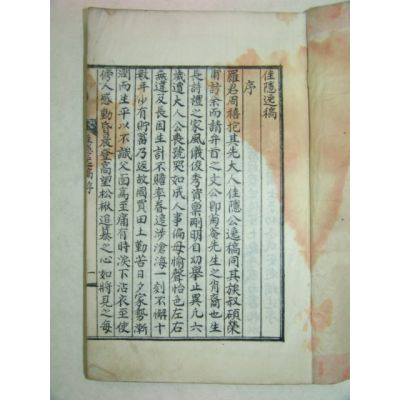 佳隱逸稿
序
羅君周禧抱其先大人佳隱公逸稿同其族叔碩榮
甫訪余而請弁首之文公卽菊菴先生之肖裔也生
長詩禮之家風儀俊秀資稟剛明自幼擧止異凡六
歲遭大人公喪號哭如成人事偏母愉聲怡色左右
無違及長因生計不贍率眷遠涉滄海一刻不懈十
數年少有貯蓄乃返故國買田上勤苦日夕家勢漸
潤而生平以不識父面爲至痛有時淚下沾衣至使
傍人感動昏晨登高望松楸追慕之心如將見之每